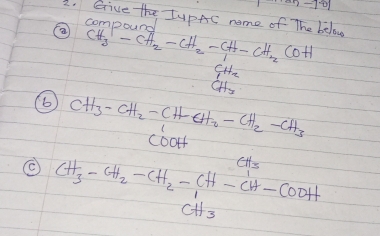 2. Give the IUPAC name of The below
compound
(a) CH3 - CH2 - CH2 - CH - CH2 COH
CH2
CH3
(b) CH3 - CH2 - CH - CH2 - CH2 - CH3
COOH
CH3
(c) CH3 - CH2 - CH2 - CH - CH - COOH
CH3